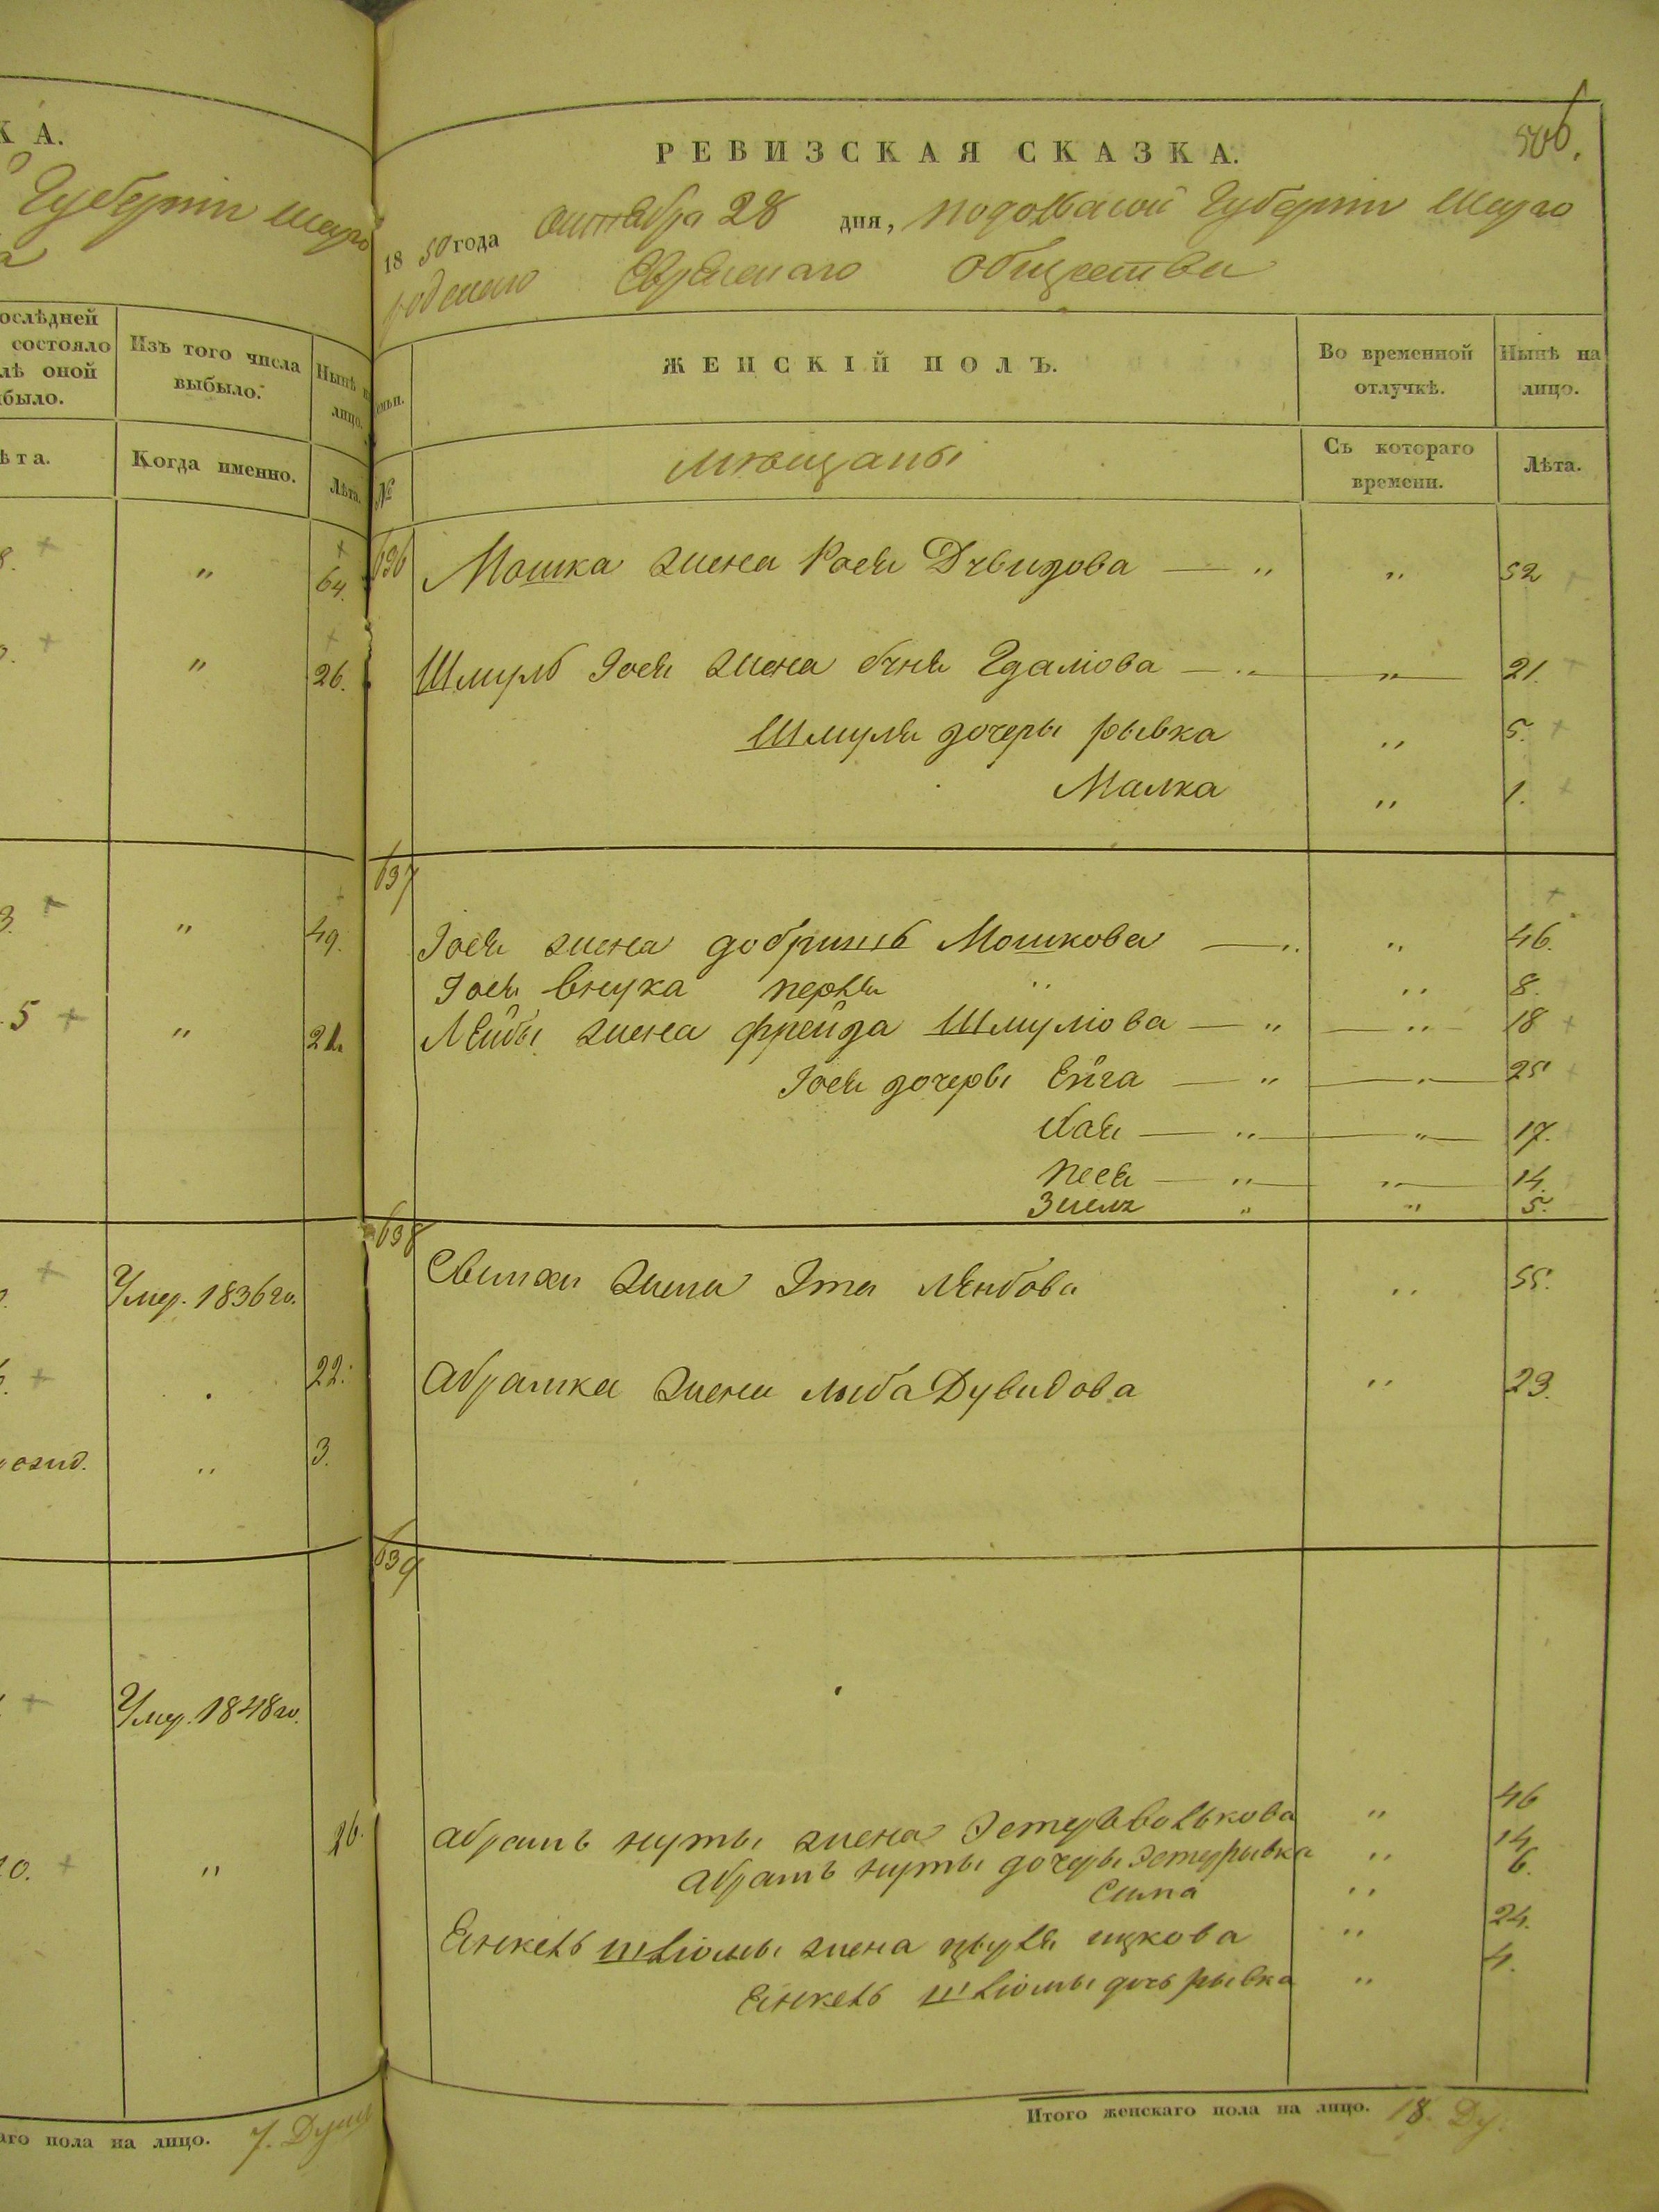 К А.
Губерніи Шарго
послѣдней
состояло
лѣ оной
было.
Изъ того числа
выбыло.
Нынѣ н
лицо.
ѣта.
Когда именно.
Лѣта.
8. "
64.
" 26.
3. " 49.
5 " 21.
Умер. 1836 го.
22.
3.
Умер. 1848 го.
20. " 26.
аго пола на лицо. 7. Душ
506.
РЕВИЗСКАЯ СКАЗКА.
18 50 года Октября 28 дня, Подольской Губерніи Шарго
родского Еврейского Общества
емьи.
ЖЕНСКІЙ ПОЛЪ.
Во временной
отлучкѣ.
Нынѣ на
лицо.
№
мещаны
Съ котораго
времени.
Лѣта.
636 Мошка жена Рося Дувидова — " " 52
Шмуль Іося жена Бня Гдалюва — " " 21.
Шмуля дочеры Рывка " 5.
Малка " 1.
637
Іося жена Добришъ Мошкова — " " 46.
Іося внука Перля " " 8.
Лейбы жена Фрейда Шмулюва — " " 18
Іося дочеры Ейга — " " 25
Хася — " " 17.
Песя — " " 14.
" " 5.
638
жена Эта Лейбова " 55.
Абрамка жена Лыба Дувидова " 23.
639
Абрамъ Нуты жена Эстеръ Волькова " 46
Абрамъ Нуты дочеры Эстеррывка " 14.
Сима " 6.
Янкель Шлюмы жена Цырля Ицкова " 24.
Янкель Шлюмы дочь Рывка " 4.
Итого женскаго пола на лицо. 18. Ду.